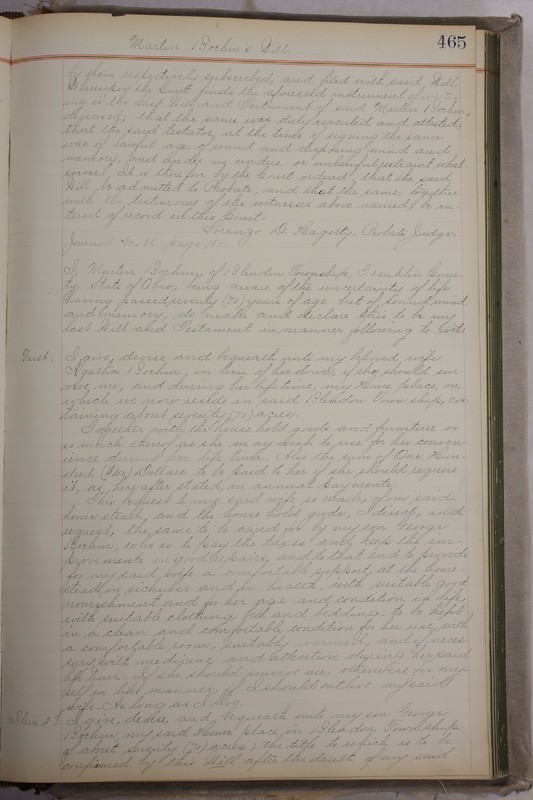 Martin Boehm's Will.
465
by them respectively subscribed, and filed with said Will.
Whereupon the Court finds the aforesaid instrument of writ-
ing is the last Will and Testament of said Martin Boehm,
deceased; that the same was duly executed and attested,
that the said testator, at the time of signing the same
was of lawful age, of sound and disposing mind and
memory, and under no undue or unlawful restraint what-
soever. It is therefore by the Court ordered, that the said
Will be admitted to Probate, and that the same, together
with the testimony of the witnesses above named be en-
tered of record in this Court.
Lorenzo D. Hagerty, Probate Judge.
Journal No. 36, page
I, Martin Boehm, of Blendon Township, Franklin Coun-
ty State of Ohio, being aware of the uncertainty of life
having passed seventy (70) years of age but of sound mind
and memory, do make and declare this to be my
last Will and Testament in manner following to wit:
First. I give, devise and bequeath unto my beloved wife
Agatha Boehm, in lieu of her dower, if she should sur-
vive me, and during her life time, my Home place, on
which we now reside in said Blendon Township, con-
taining about seventy (70) acres.
Together with the house hold goods and furniture or
so much thereof as she may wish to use for her conven-
ience during her life time. Also the sum of One Hun-
dred Dollars to be paid to her if she should require
it, as hereafter stated, in annual payments.
This bequest to my said wife is made, of my said
home stead, and the house hold goods, I direct, and
request, the same to be cared for by my son George
Boehm, who is to pay the taxes and keep the im-
provements in good repairs, and to that end to provide
for my said wife a comfortable support, at the home-
stead in sickness and in health, with suitable good
nourishment and for her age and condition in life,
with suitable clothing, bed and bedding, to be kept
in a clean and comfortable condition for her use, with
a comfortable room, suitably warmed, and if neces-
sary with medicine and attention during her said
life time. If she should survive me, otherwise for my-
self in like manner, if I should outlive my said
wife. As long as I live.
Item 2. I give, devise, and bequeath unto my son George
Boehm, my said Home place in Blendon Township
of about seventy (70) acres; the title to which is to be
confirmed by this Will after the death of my said